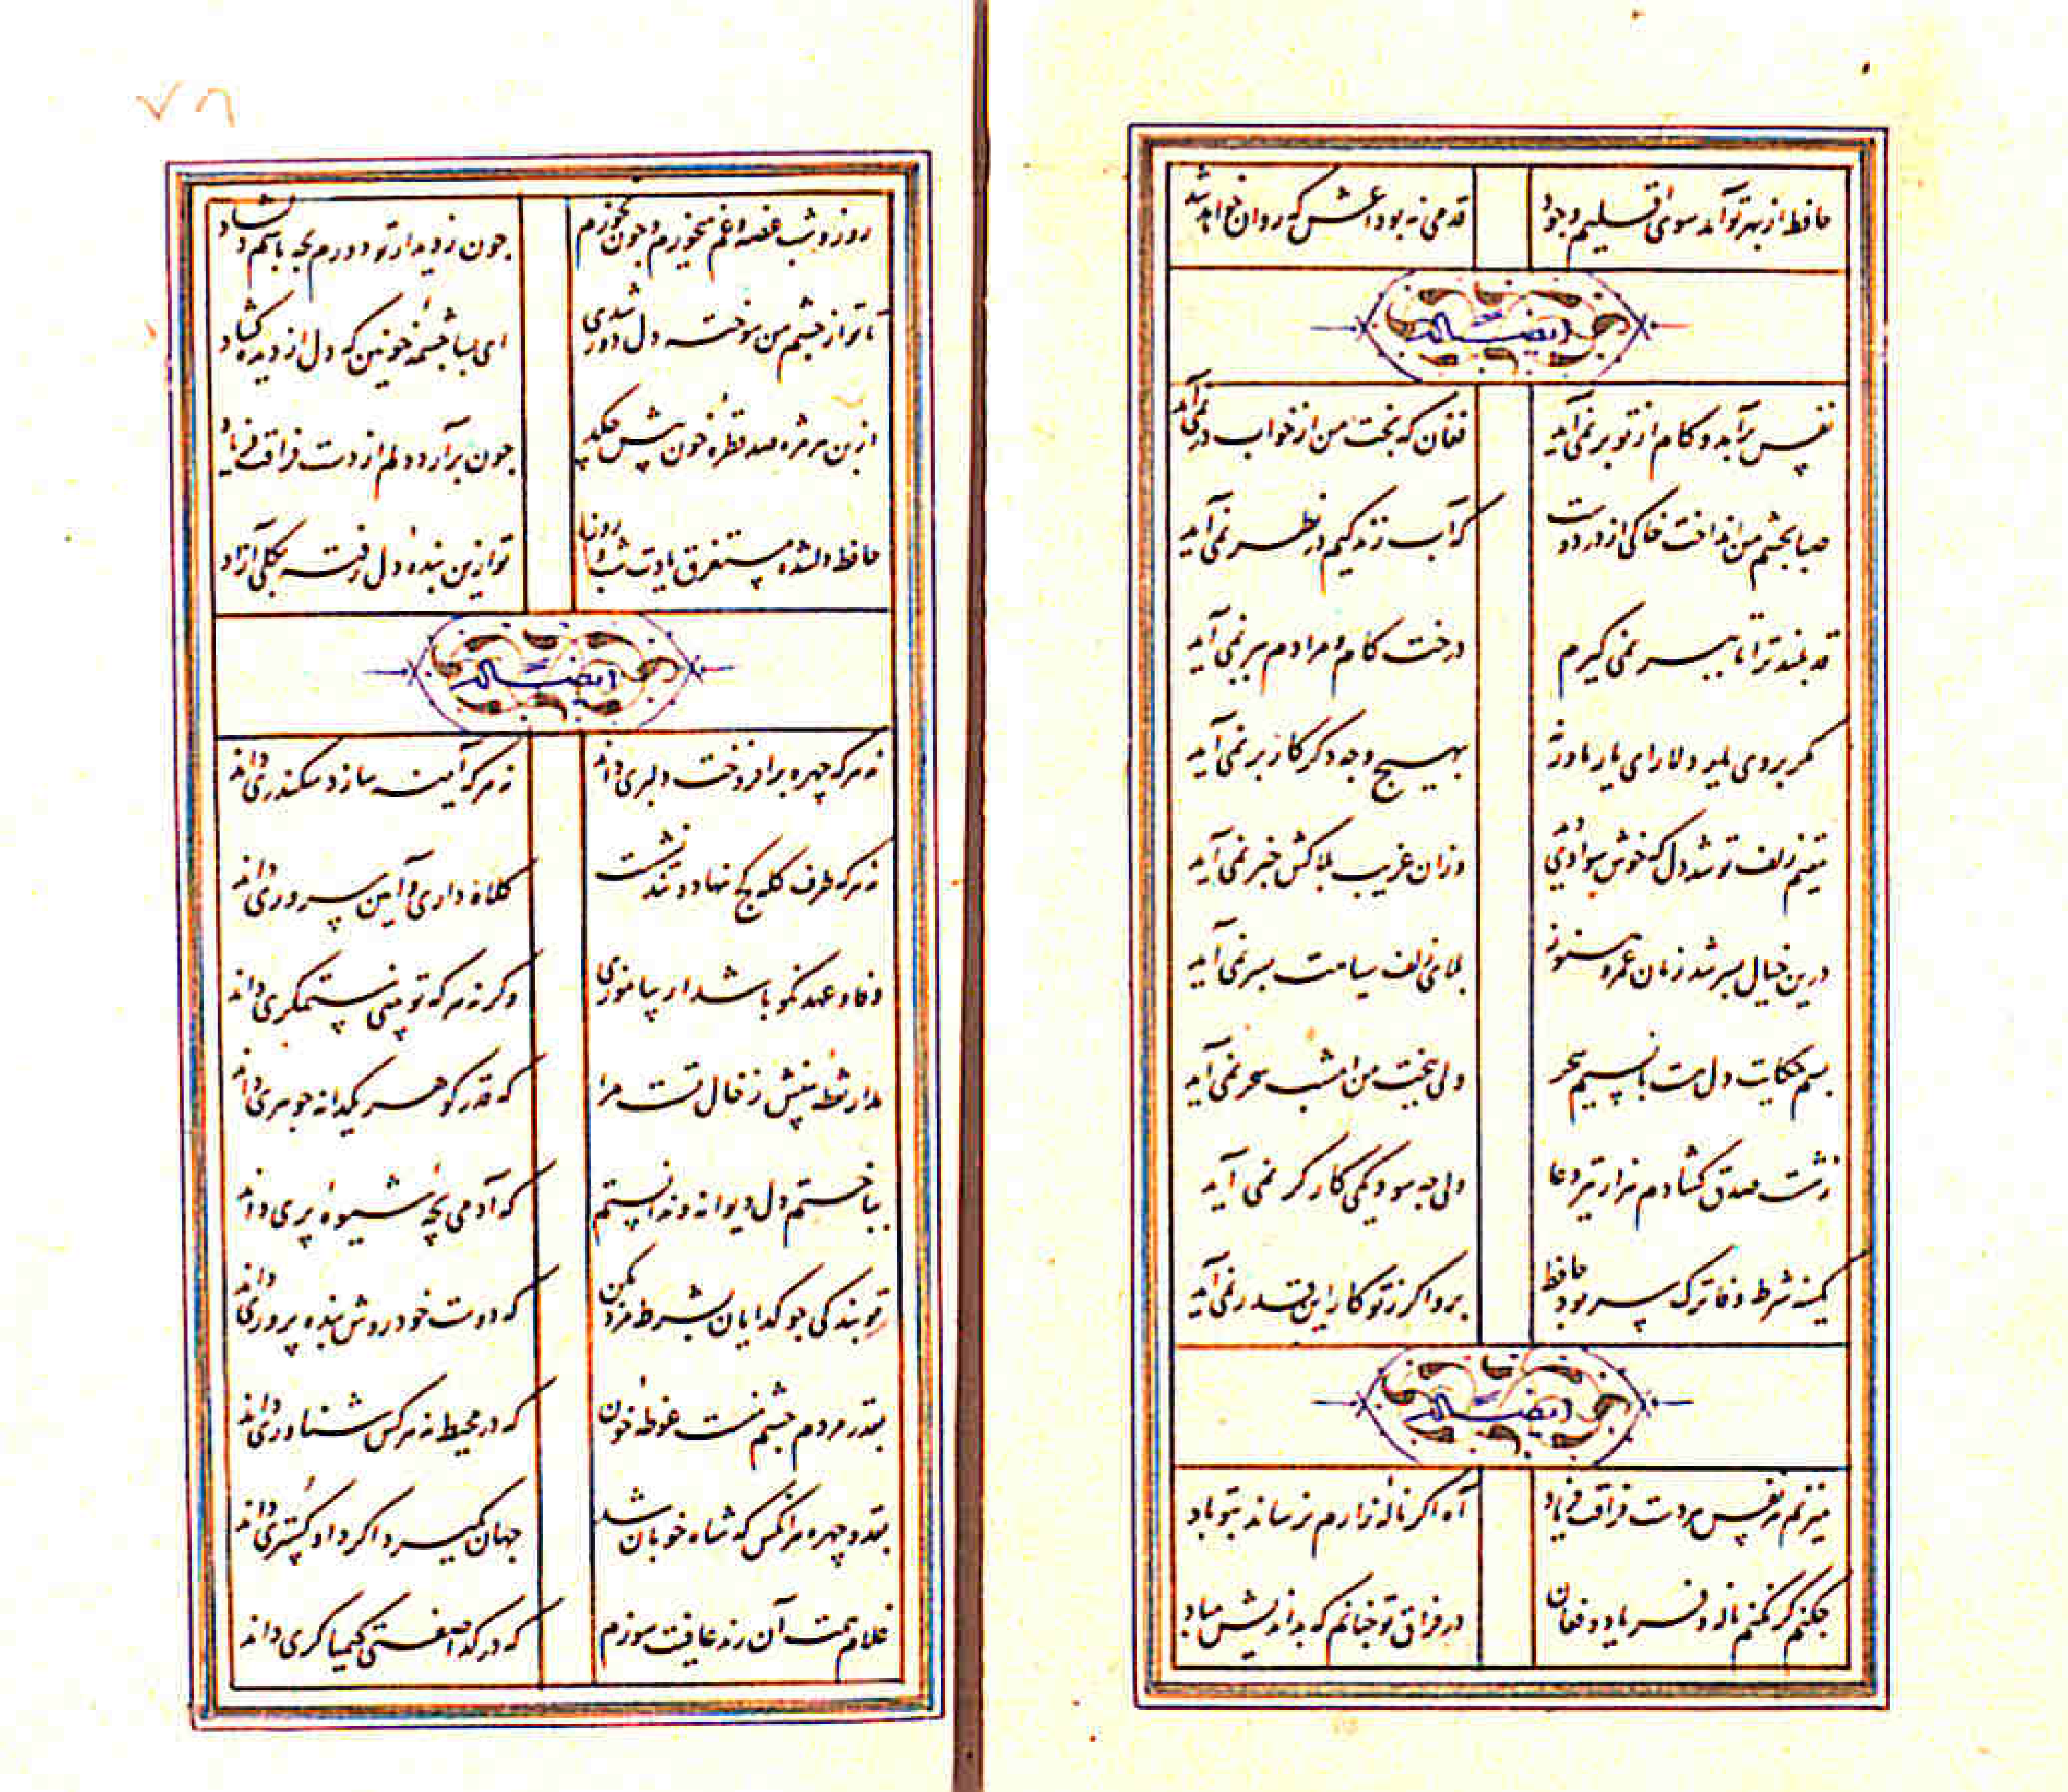 حافظ از بهر تو آمد سوی اقلیم وجود
قدمی نه بوداعش که روان خواهد شد
ایضاً له
نفس برآمد و کام از تو بر نمی‌آید
فغان که بخت من از خواب در نمی‌آید
صبا بچشم من انداخت خاکی از در دوست
که آب زندگیم در نظر نمی‌آید
قد بلند ترا تا ببر نمی‌گیرم
درخت کام و مرادم ببر نمی‌آید
مگر بروی دلارای یار ما ورنه
بهیچ وجه دگر کار بر نمی‌آید
مقیم زلف تو شد دل که خوش سوادی دید
وزان غریب بلاکش خبر نمی‌آید
درین خیال بسر شد زمان عمر و هنوز
بلای زلف سیاهت بسر نمی‌آید
بسم حکایت دل هست با نسیم سحر
ولی ببخت من امشب سحر نمی‌آید
ز شست صدق کشادم هزار تیر دعا
ولی چه سود یکی کارگر نمی‌آید
کمینه شرط وفا ترک سر بود حافظ
برو اگر ز تو کار این قدر نمی‌آید
ایضاً له
میزنم هر نفس از دست فراقت فریاد
آه اگر نالهٔ زارم نرساند بتو باد
چکنم گر نکنم ناله و فریاد و فغان
در فراق تو چنانم که بداندیش مباد
۷۸
روز و شب غصه و غم میخورم و چون نخورم
چون ز دیدار تو دورم بچه باشم دلشاد
تا تو از چشم من سوخته دل دور شدی
ای بسا چشمهٔ خونین که دل از دیده کشاد
از بن هر مژه صد قطرهٔ خون پیش چکد
چون برآرد دلم از دست فراقت فریاد
حافظ دلشده مستغرق یادت شب و روز
تو ازین بندهٔ دل رفته بکلی آزاد
ایضاً له
نه هر که چهره برافروخت دلبری داند
نه هر که آینه سازد سکندری داند
نه هر که طرف کله کج نهاد و تند نشست
کلاه داری و آیین سروری داند
وفا و عهد نکو باشد ار بیاموزی
وگرنه هر که تو بینی ستمگری داند
مدار نقطهٔ بینش ز خال تست مرا
که قدر گوهر یکدانه جوهری داند
بباختم دل دیوانه و ندانستم
که آدمی بچهٔ شیوهٔ پری داند
تو بندگی چو گدایان بشرط مزد مکن
که دوست خود روش بنده پروری داند
بقدر مردم چشم منست غوطهٔ خون
که در محیط نه هر کس شناوری داند
بقد و چهره هر آنکس که شاه خوبان شد
جهان بگیرد اگر دادگستری داند
غلام همت آن رند عافیت سوزم
که در گدا صفتی کیمیاگری داند